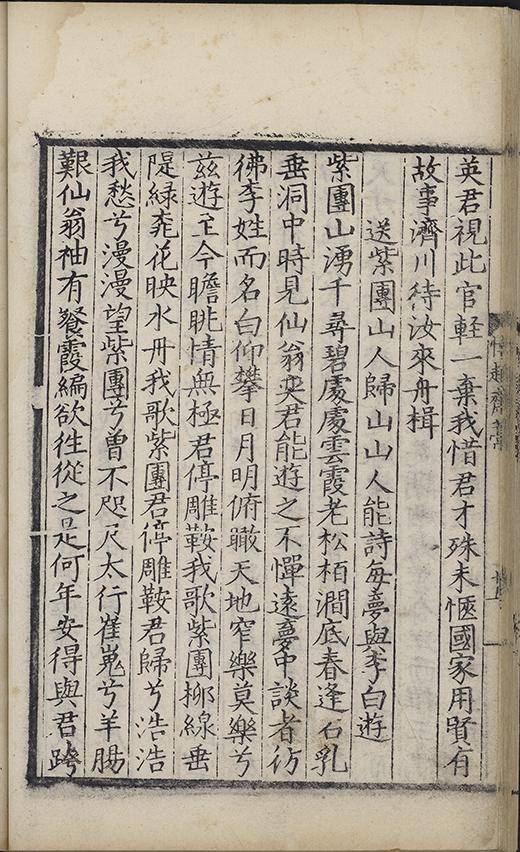 英君視此官軽一棄我惜君才殊未愜國家用賢有
故事濟川待汝來舟楫
送紫團山人歸山山人能詩每夢與李白遊
紫團山湧千尋碧處處雲霞老松栢澗底春逢石乳
垂洞中時見仙翁奕君能遊之不憚遠夢中談者彷
彿李姓而名白仰攀日月明俯瞰天地窄樂莫樂兮
茲遊至今瞻眺情無極君停雕鞍我歌紫團柳線垂
隄緑桃花映水丹我歌紫團君停雕鞍君歸兮浩浩
我愁兮漫漫望紫團兮曾不咫尺太行崔嵬兮羊腸
艱仙翁袖有餐霞編欲往從之是何年安得與君跨